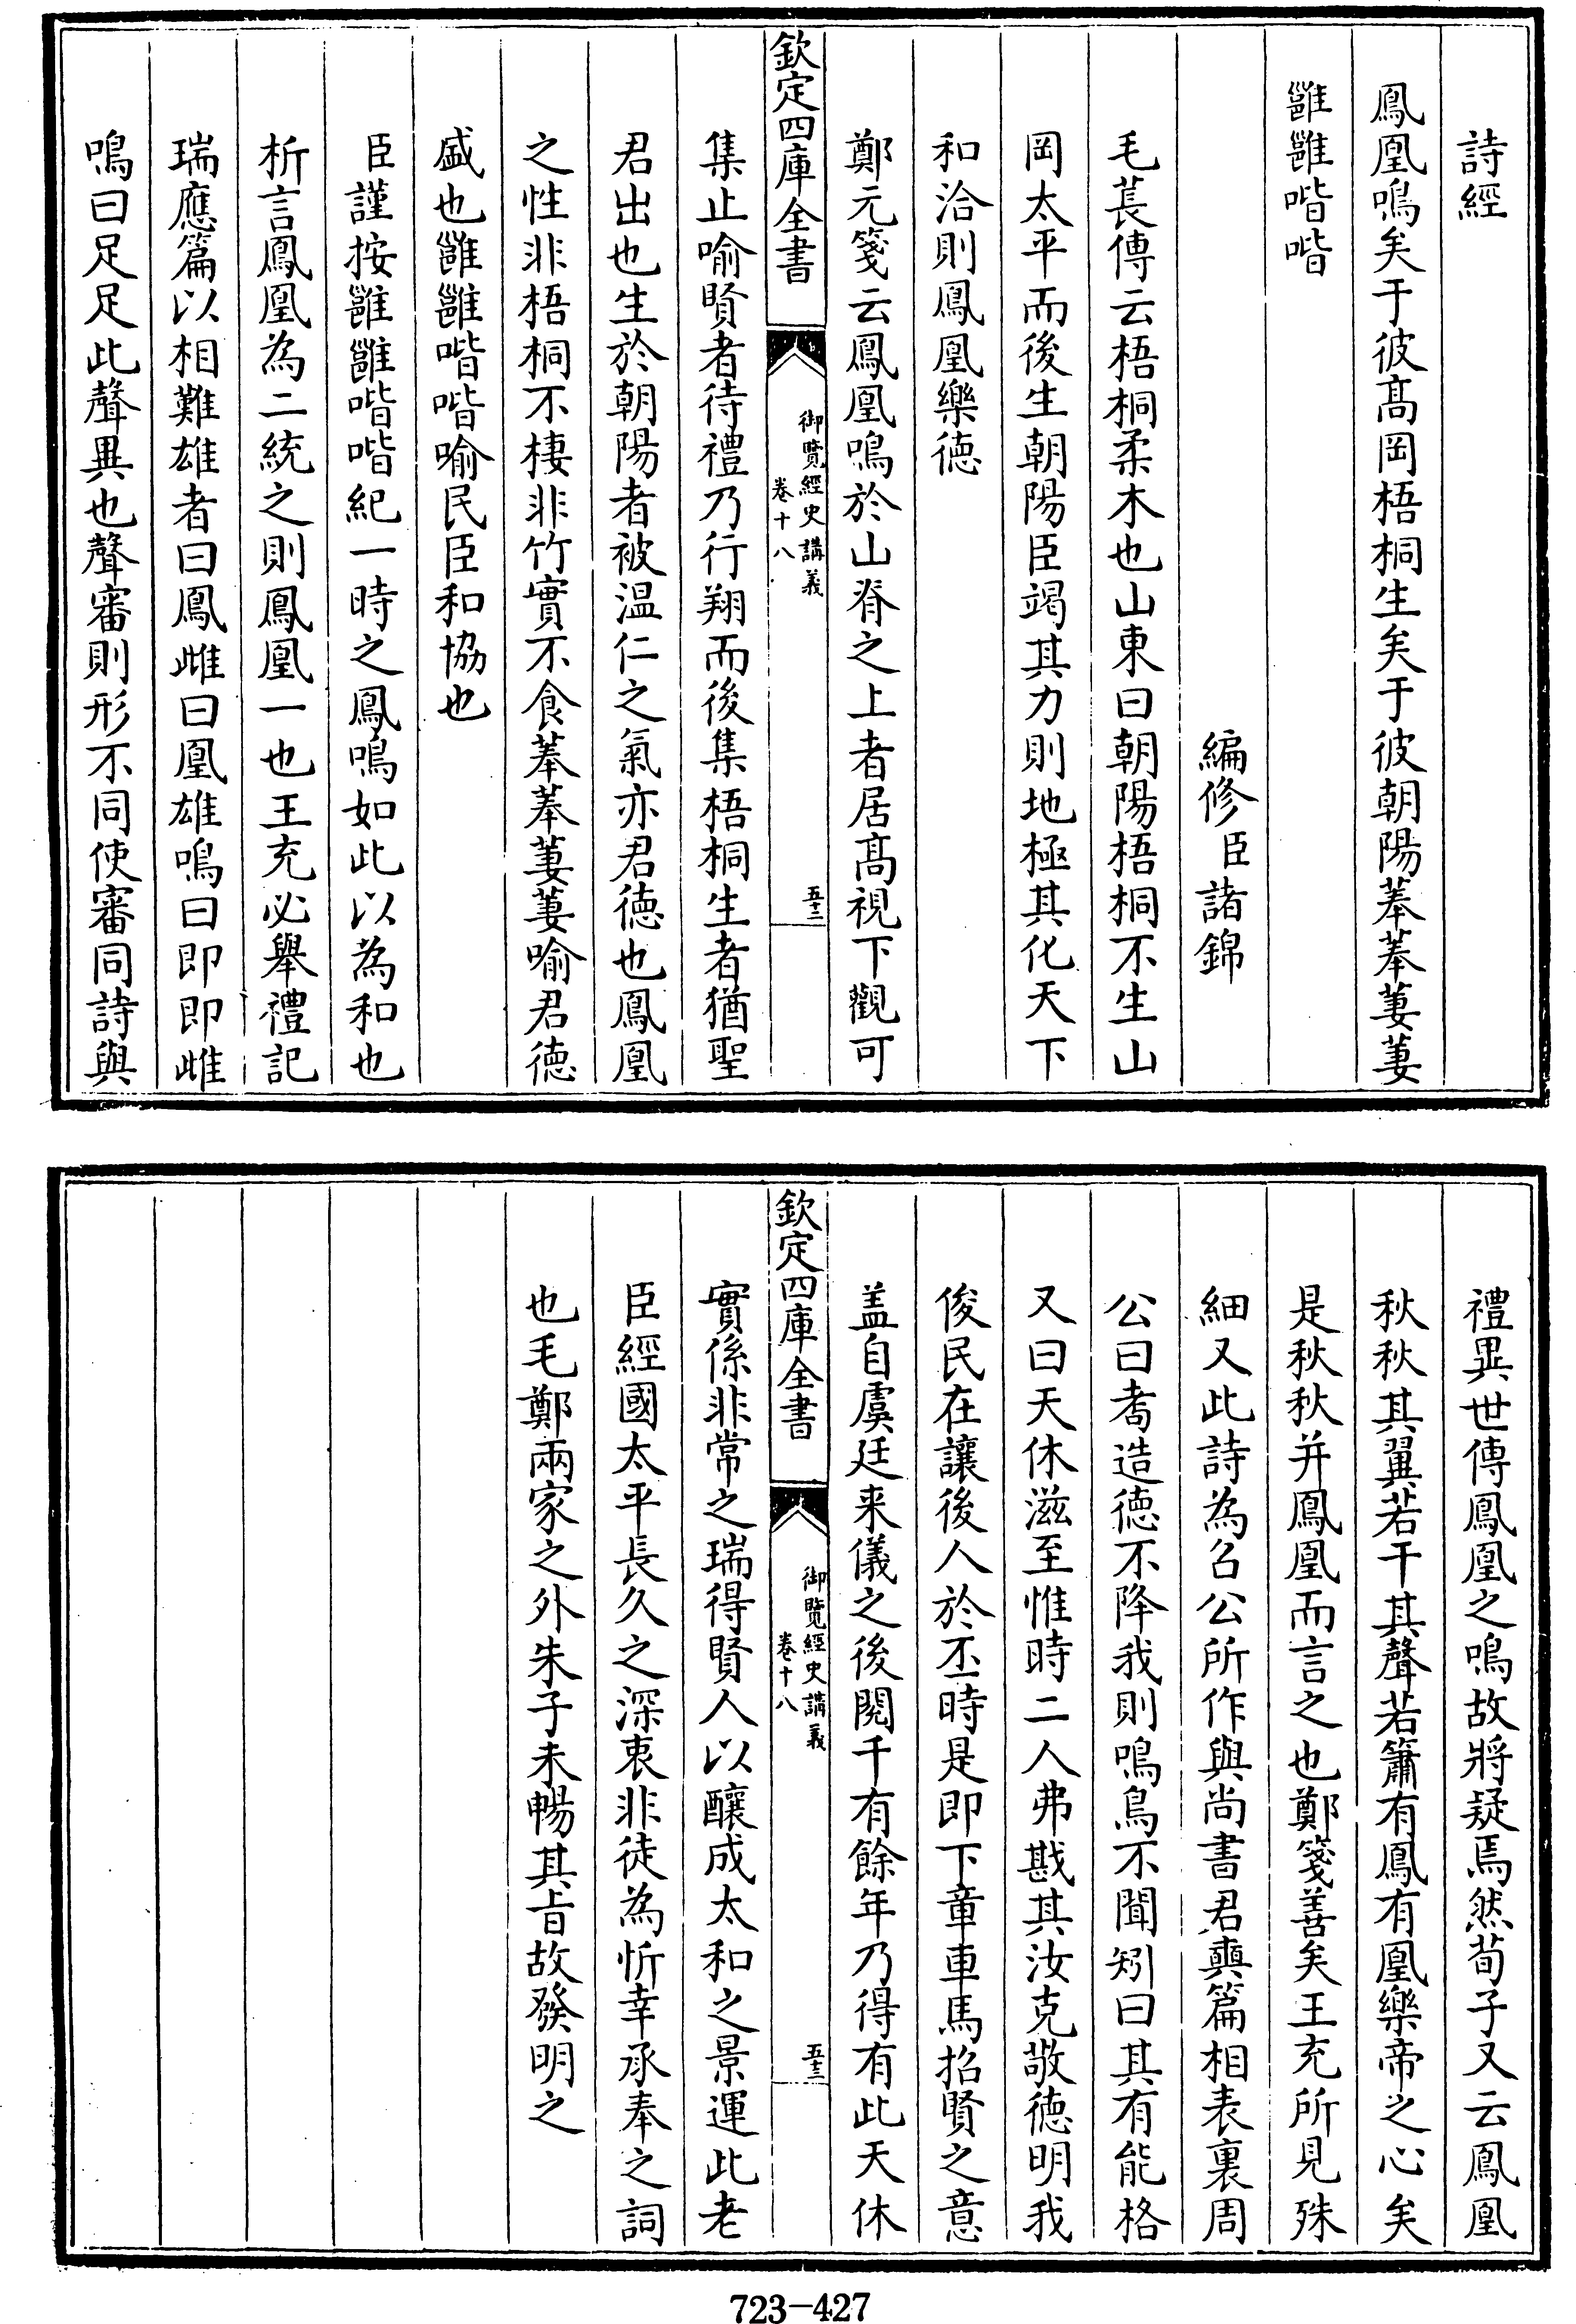 詩經
鳳凰鳴矣于彼髙岡梧桐生矣于彼朝陽菶菶萋萋
雝雝喈喈
編修臣諸錦
毛萇傳云梧桐柔木也山東曰朝陽梧桐不生山
岡太平而後生朝陽臣竭其力則地極其化天下
和洽則鳳凰樂徳
鄭元箋云鳳凰鳴於山脊之上者居髙視下觀可
欽定四庫全書
御覽經史講義
卷十八
五十二
集止喻賢者待禮乃行翔而後集梧桐生者猶聖
君出也生於朝陽者被温仁之氣亦君徳也鳳凰
之性非梧桐不棲非竹實不食菶菶萋萋喻君徳
盛也雝雝喈喈喻民臣和協也
臣謹按雝雝喈喈紀一時之鳳鳴如此以為和也
析言鳳凰為二統之則鳳凰一也王充必舉禮記
瑞應篇以相難雄者曰鳳雌曰凰雄鳴曰即即雌
鳴曰足足此聲異也聲審則形不同使審同詩與
禮異世傳鳳凰之鳴故將疑焉然荀子又云鳳凰
秋秋其翼若干其聲若簫有鳳有凰樂帝之心矣
是秋秋并鳳凰而言之也鄭箋善矣王充所見殊
細又此詩為召公所作與尚書君奭篇相表裏周
公曰耇造徳不降我則鳴鳥不聞矧曰其有能格
又曰天休滋至惟時二人弗戡其汝克敬徳明我
俊民在讓後人於丕時是即下章車馬招賢之意
盖自虞廷来儀之後閱千有餘年乃得有此天休
欽定四庫全書
御覽經史講義
卷十八
五十三
實係非常之瑞得賢人以釀成太和之景運此老
臣經國太平長久之深衷非徒為忻幸承奉之詞
也毛鄭兩家之外朱子未暢其㫖故發明之
723-427